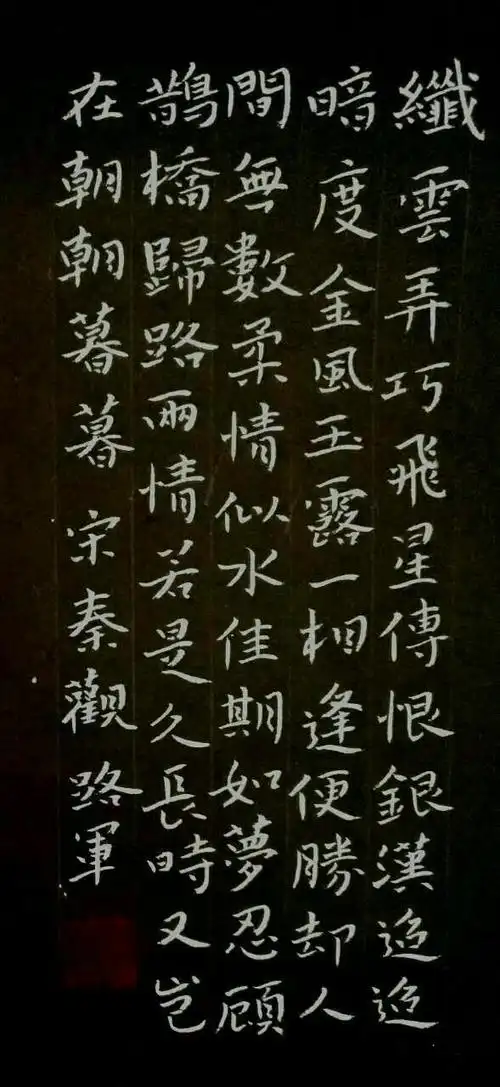 纖雲弄巧飛星傳恨銀漢迢迢
暗度金風玉露一相逢便勝却人
間無數柔情似水佳期如夢忍顧
鵲橋歸路兩情若是久長時又豈
在朝朝暮暮 宋秦觀 路軍